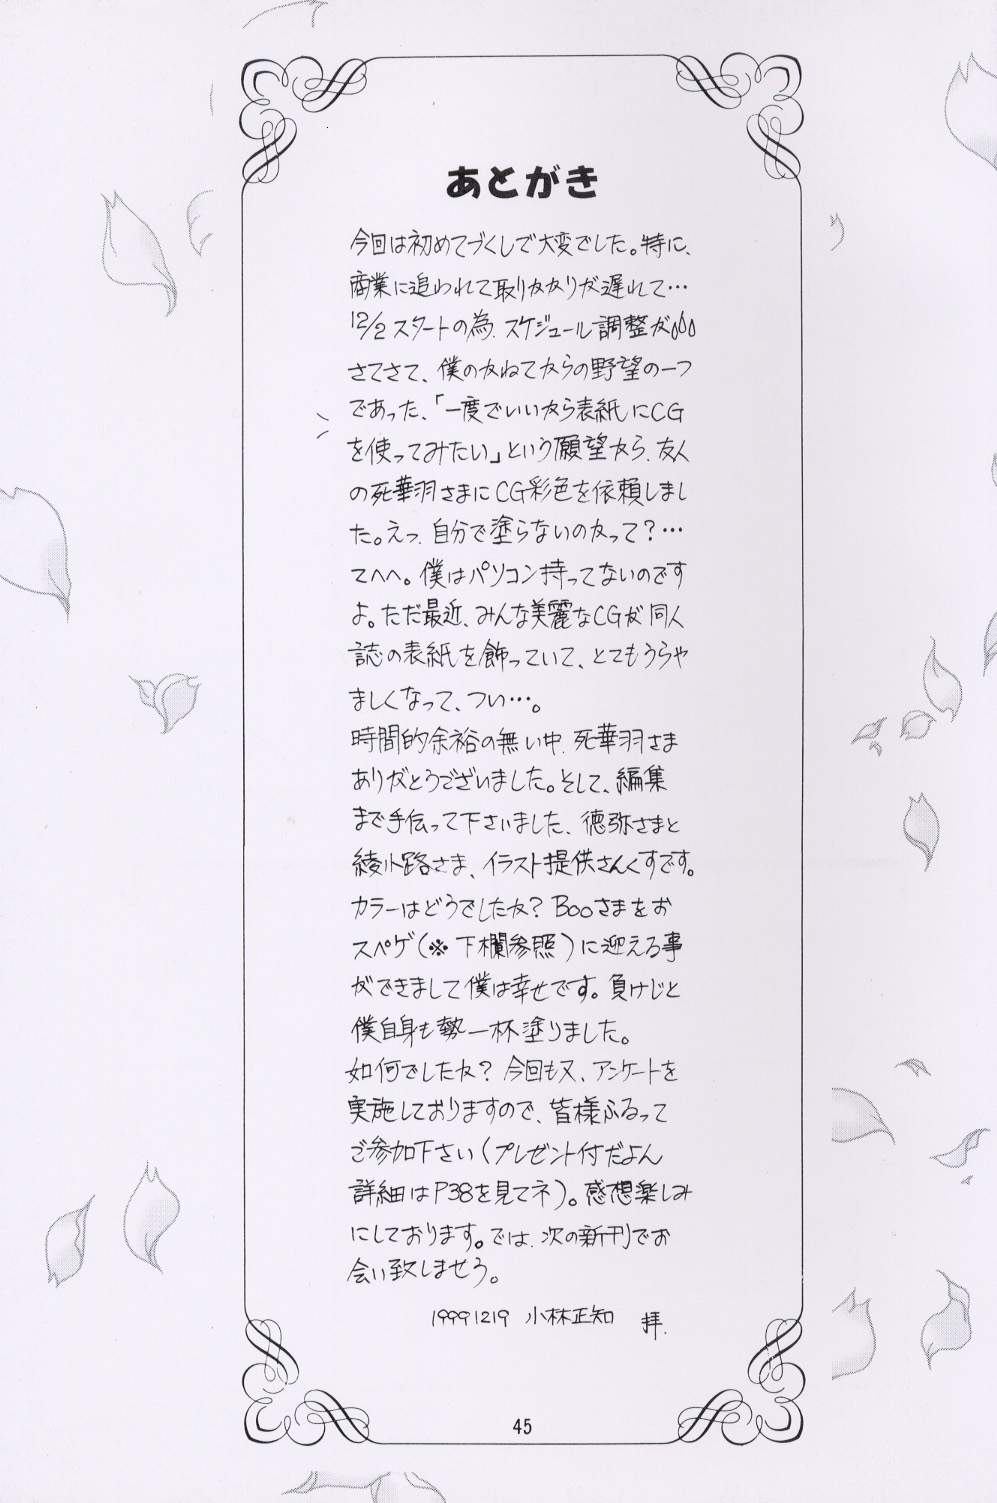 あとがき
今回は初めてづくしで大変でした。特に、
商業に追われて取りかかりが遅れて…
12/2スタートの為、スケジュール調整が
さてさて、僕のかねてからの野望の一つ
であった、「一度でいいから表紙にCG
を使ってみたい」という願望から、友人
の死華羽さまにCG彩色を依頼しまし
た。えっ、自分で塗らないのかって？…
てへへ。僕はパソコン持ってないのです
よ。ただ最近、みんな美麗なCGが同人
誌の表紙を飾っていて、とてもうらや
ましくなって、つい…。
時間的余裕の無い中、死華羽さま
ありがとうございました。そして、編集
まで手伝って下さいました、徳弥さまと
綾小路さま、イラスト提供さんくすです。
カラーはどうでしたか？Booさまをお
スペゲ(※下欄参照)に迎える事
ができまして僕は幸せです。負けじと
僕自身も勢一杯塗りました。
如何でしたか？今回も又、アンケートを
実施しておりますので、皆様ふるって
ご参加下さい(プレゼント付だよん
詳細はP38を見てネ)。感想楽しみ
にしております。では、次の新刊でお
会い致しませう。
19991219 小林正知 拝.
45